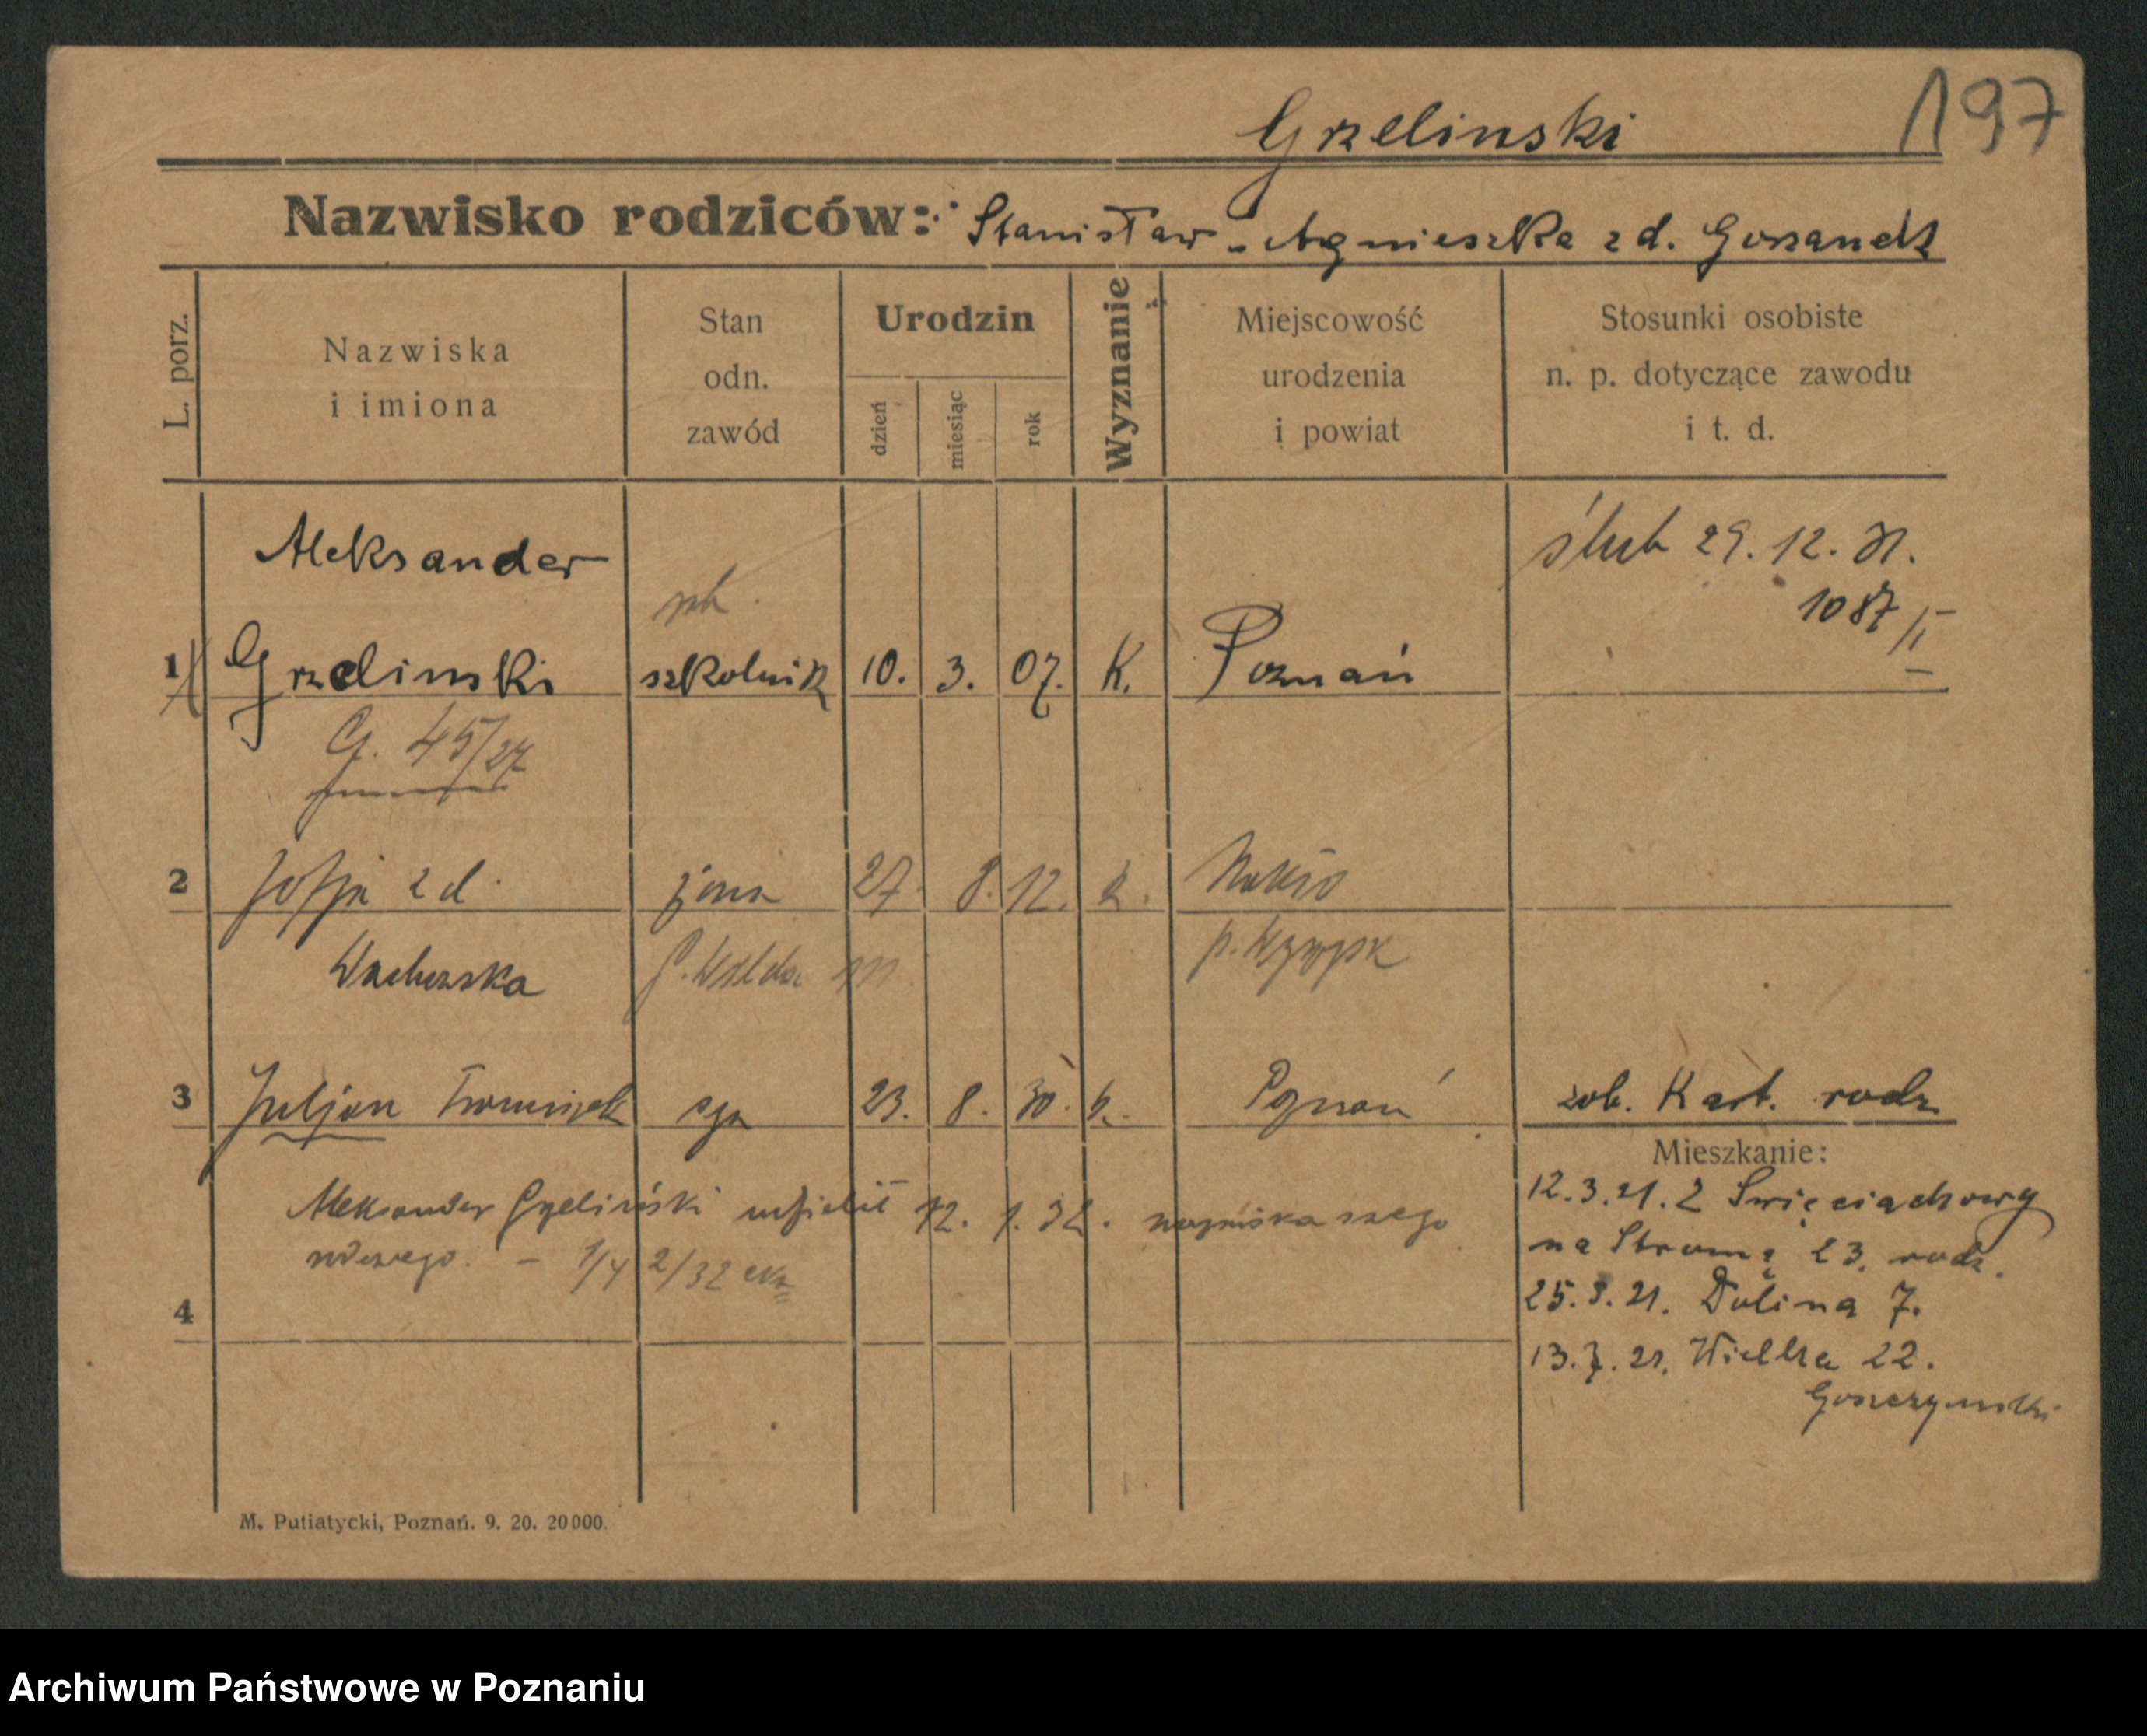 197
Grzelinski
Nazwisko rodziców: Stanisław - Agnieszka z d.
L. porz.
Nazwiska i imiona
Stan odn. zawód
Urodzin
dzień
miesiąc
rok
Wyznanie
Miejscowość urodzenia i powiat
Stosunki osobiste n. p. dotyczące zawodu i t. d.
Aleksander
ślub 29. 12. 31.
1087/II
1 Grzelinski szkolnik 10. 3. 07. K. Poznań
G. 45/27
2 Zofja z d. żona 27. 8. 12. k. Nakło
p. Wyrzysk
3 Juljan syn 23. 8. 30. k. Poznań zob. Kart. rodz.
Mieszkanie:
12.3.21. z Święciachowy
na Stromą 23. rodz.
25.3.21. Dolina 7.
13.7.21. Wielka 22.
Goszczynski
Aleksander Grzeliński 12. 1. 32. nazwiska
2/32
4
M. Putiatycki, Poznań. 9. 20. 20000.
Archiwum Państwowe w Poznaniu